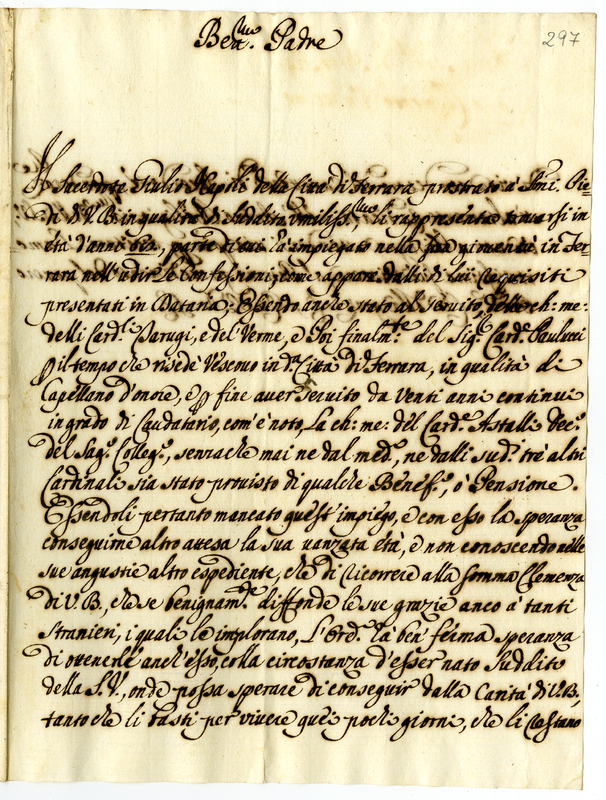 Beat.mo Padre
297
Il Sacerdote Giulio Napoli della Città di Ferrara prostrato à S.mi Pie=
di di V. B. in qualità di suddito umiliss.mo, li rappresenta trovarsi in
età d'anni, parte di cui l'à impiegato nella in Fer=
rara nell'udir le Confessioni, come appare dalli di lui requisiti
presentati in Dataria; Essendo anche stato al servito delle ch: me:
delli Card.li Sarugi, e del Verme, e Poi finalm.te del Sig.r Card.e Paulucci
p il tempo che risedè Vescovo in d.a Città di Ferrara, in qualità di
Capellano d'onore, e p fine aver servito da venti anni continui
in grado di Caudatario, com'è noto, La ch: me: del Card.e Astalli Dec.o
del Sag.o Colleg.o, senza che mai ne dal med.o, ne dalli sud.i trè altri
Cardinali sia stato provisto di qualche Benef.o, ò Pensione.
Essendoli pertanto mancato quest'impiego, e con esso la speranza
conseguirne altro attesa la sua avanzata età, e non conoscendo nelle
sue angustie altro espediente, che di ricorrere alla somma Clemenza
di V. B., che se benignam.te diffonde le sue grazie anco à tanti
stranieri, i quali le implorano, L'Ore. hà ben ferma speranza
di ottenerle anch'esso, colla circostanza d'esser nato suddito
della S. V., onde possa sperare di conseguir dalla Carità di V. B.
tanto che li basti per vivere que' pochi giorni, che li restano